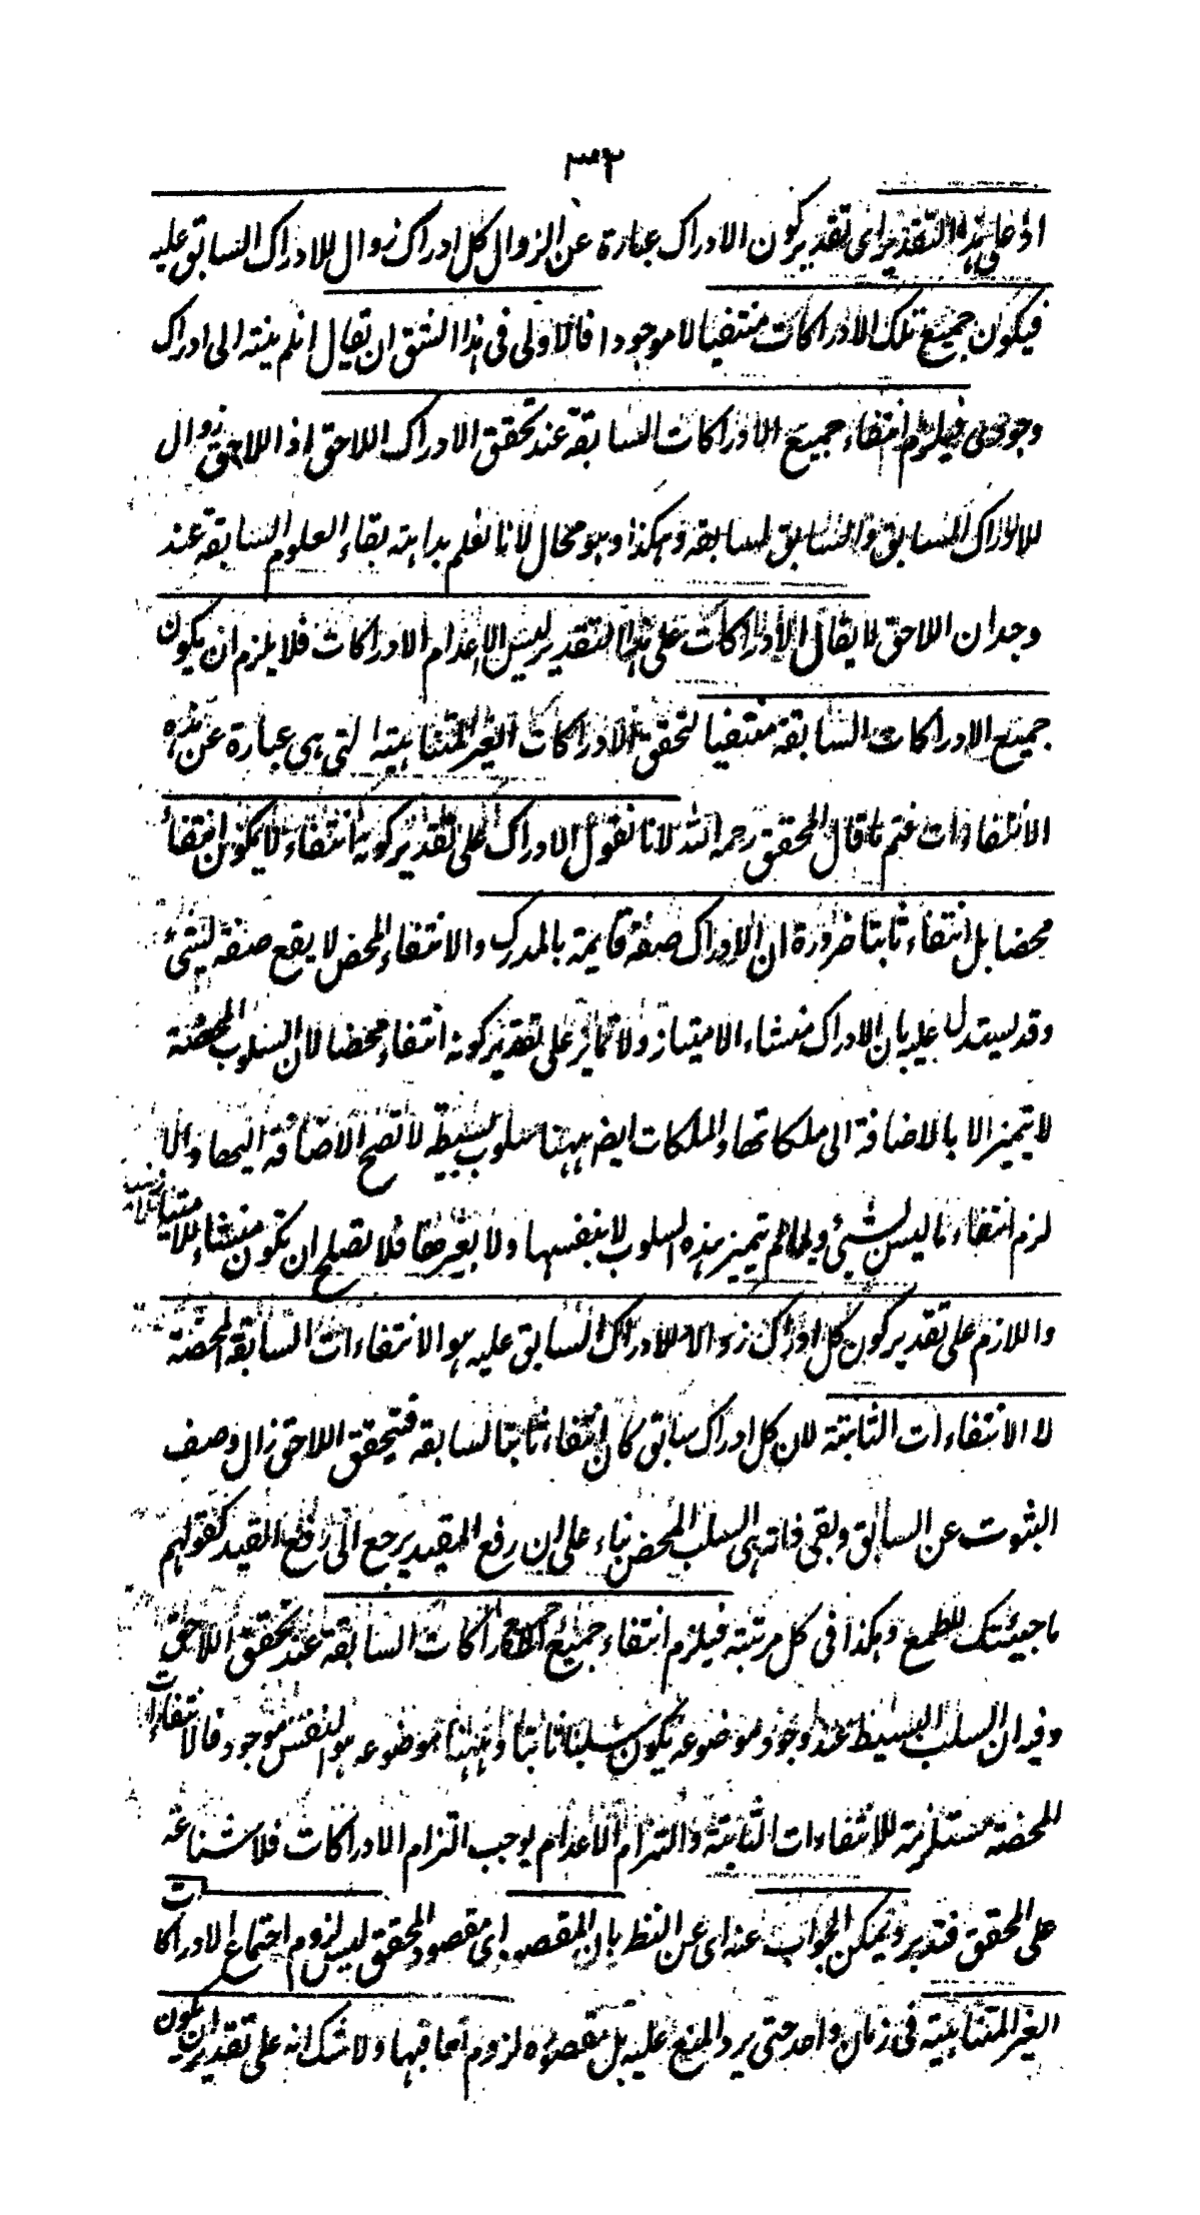 ٣٣
اذ على هذا التقدير اى تقدير كون الادراك عبارة عن الزوال كل ادراك زوال للادراك السابق عليه
فيكون جميع تلك الادراكات منتفيا لا موجودا فالاولى فى هذا الشق ان يقال ان لم ينته الى ادراك
وجودى فيلزم انتفاء جميع الادراكات السابقة عند تحقق الادراك اللاحق اذ اللاحق زوال
للادراك السابق والسابق لسابقه وهكذا وهو محال لانا نعلم بداهة بقاء العلوم السابقة عند
وجدان اللاحق لا يقال الادراكات على هذا التقدير ليس الا اعدام الادراكات فلا يلزم ان يكون
جميع الادراكات السابقة منتفيا لتحقق الادراكات الغير المتناهية التى هى عبارة عن هذه
الانتفاءات فتم ما قال المحقق رحمه الله لانا نقول الادراك على تقدير كونه انتفاء لا يكون انتفاء
محضا بل انتفاء ثابتا ضرورة ان الادراك صفة قايمة بالمدرك والانتفاء المحض لا يقع صفة لشئ
وقد يستدل عليه بان الادراك منشاء الامتياز ولا تمايز على تقدير كونه انتفاء محضا لان السلوب المحضة
لا يتميز الا بالاضافة الى ملكاتها والملكات ايض ههنا سلوب بسيطة لا تصح الاضافة اليها والا
لزم انتفاء ما ليس بشئ ولما لم يتميز هذه السلوب لا بنفسها ولا بغيرها فلا تصلح ان تكون منشاء للامتياز
واللازم على تقدير كون كل ادراك زوالا للادراك السابق عليه هو الانتفاءات السابقة المحضة
لا الانتفاءات الثابتة لان كل ادراك سابق كان انتفاء ثابتا لسابقه فبتحقق اللاحق زال وصف
الثبوت عن السابق وبقى ذاته اى السلب المحض بناء على ان رفع المقيد يرجع الى رفع القيد كقولهم
ما جيئتك للطمع وهكذا فى كل مرتبة فيلزم انتفاء جميع الادراكات السابقة عند تحقق اللاحق
وفيه ان السلب البسيط عند وجود موضوعه يكون سلبا ثابتا وههنا موضوعه هو النفس موجود فالانتفاءات
المحضة مستلزمة للانتفاءات الثابتة والتزام الاعدام يوجب التزام الادراكات فلا شناعة
على المحقق فتدبر ويمكن الجواب عنه اى عن النظر بان المقصود اى مقصود المحقق ليس لزوم اجتماع الادراكات
الغير المتناهية فى زمان واحد حتى يرد المنع عليه بل مقصوده لزوم تعاقبها ولا شك انه على تقدير ان يكون